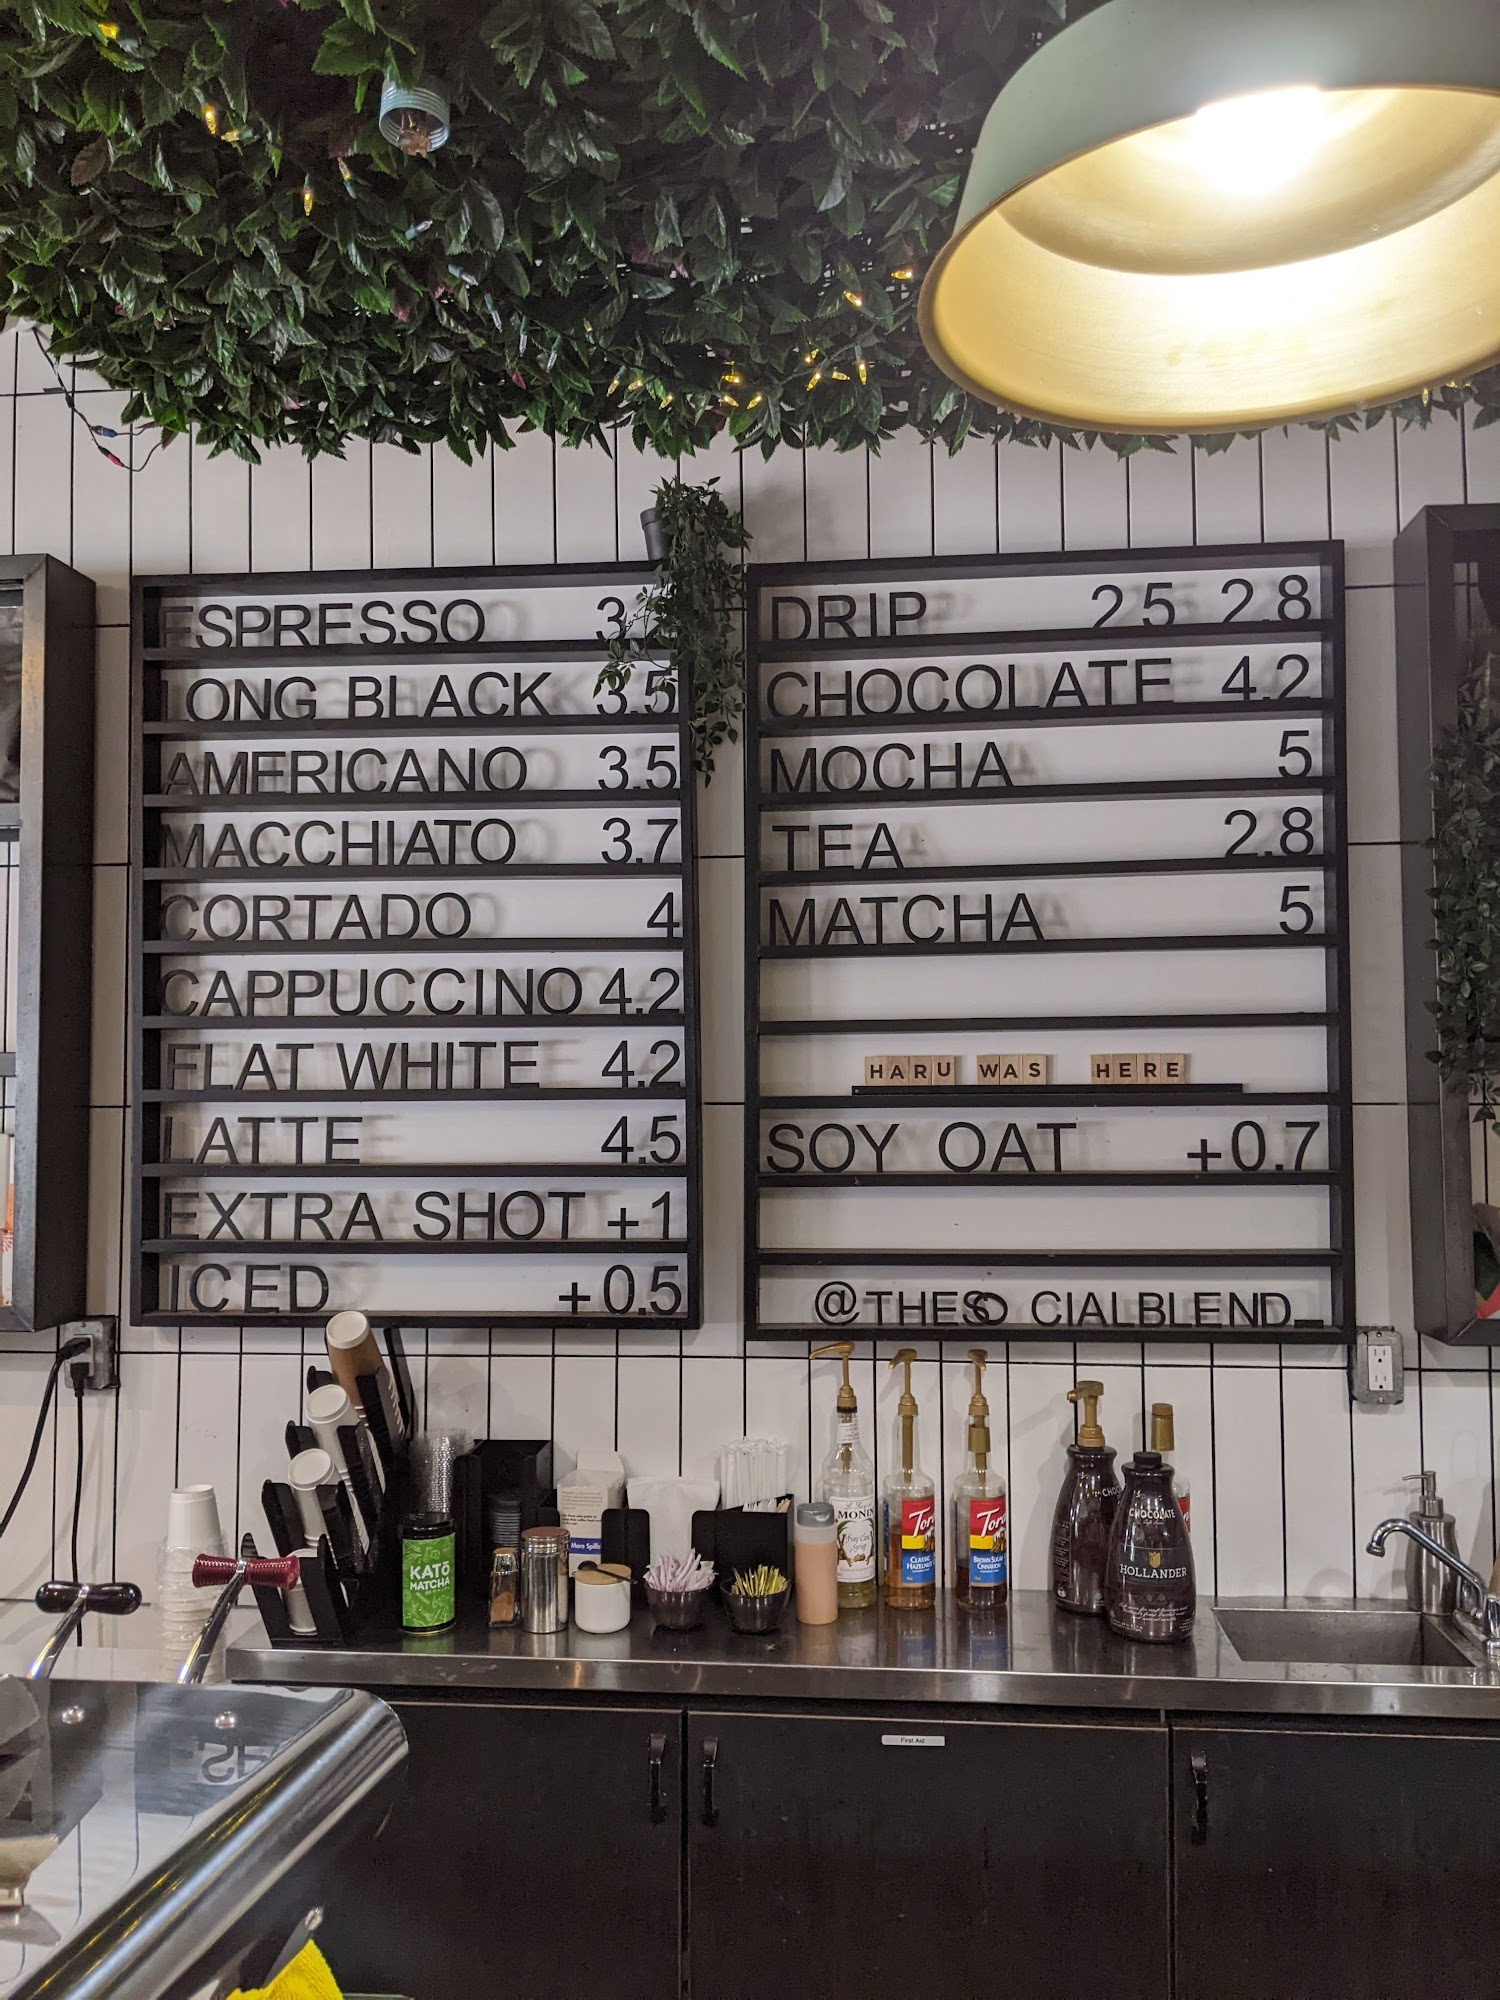 ESPRESSO 3.
LONG BLACK 3.5
AMERICANO 3.5
MACCHIATO 3.7
CORTADO 4
CAPPUCCINO 4.2
FLAT WHITE 4.2
LATTE 4.5
EXTRA SHOT +1
ICED +0.5
DRIP 2.5 2.8
CHOCOLATE 4.2
MOCHA 5
TEA 2.8
MATCHA 5
HARU WAS HERE
SOY OAT +0.7
@THESO CIALBLEND_
KATŌ
MATCHA
More Spills
MONIN
Torani
CLASSIC
HAZELNUT
Torani
BROWN SUGAR
CINNAMON
CHOCOLATE
HOLLANDER
First Aid